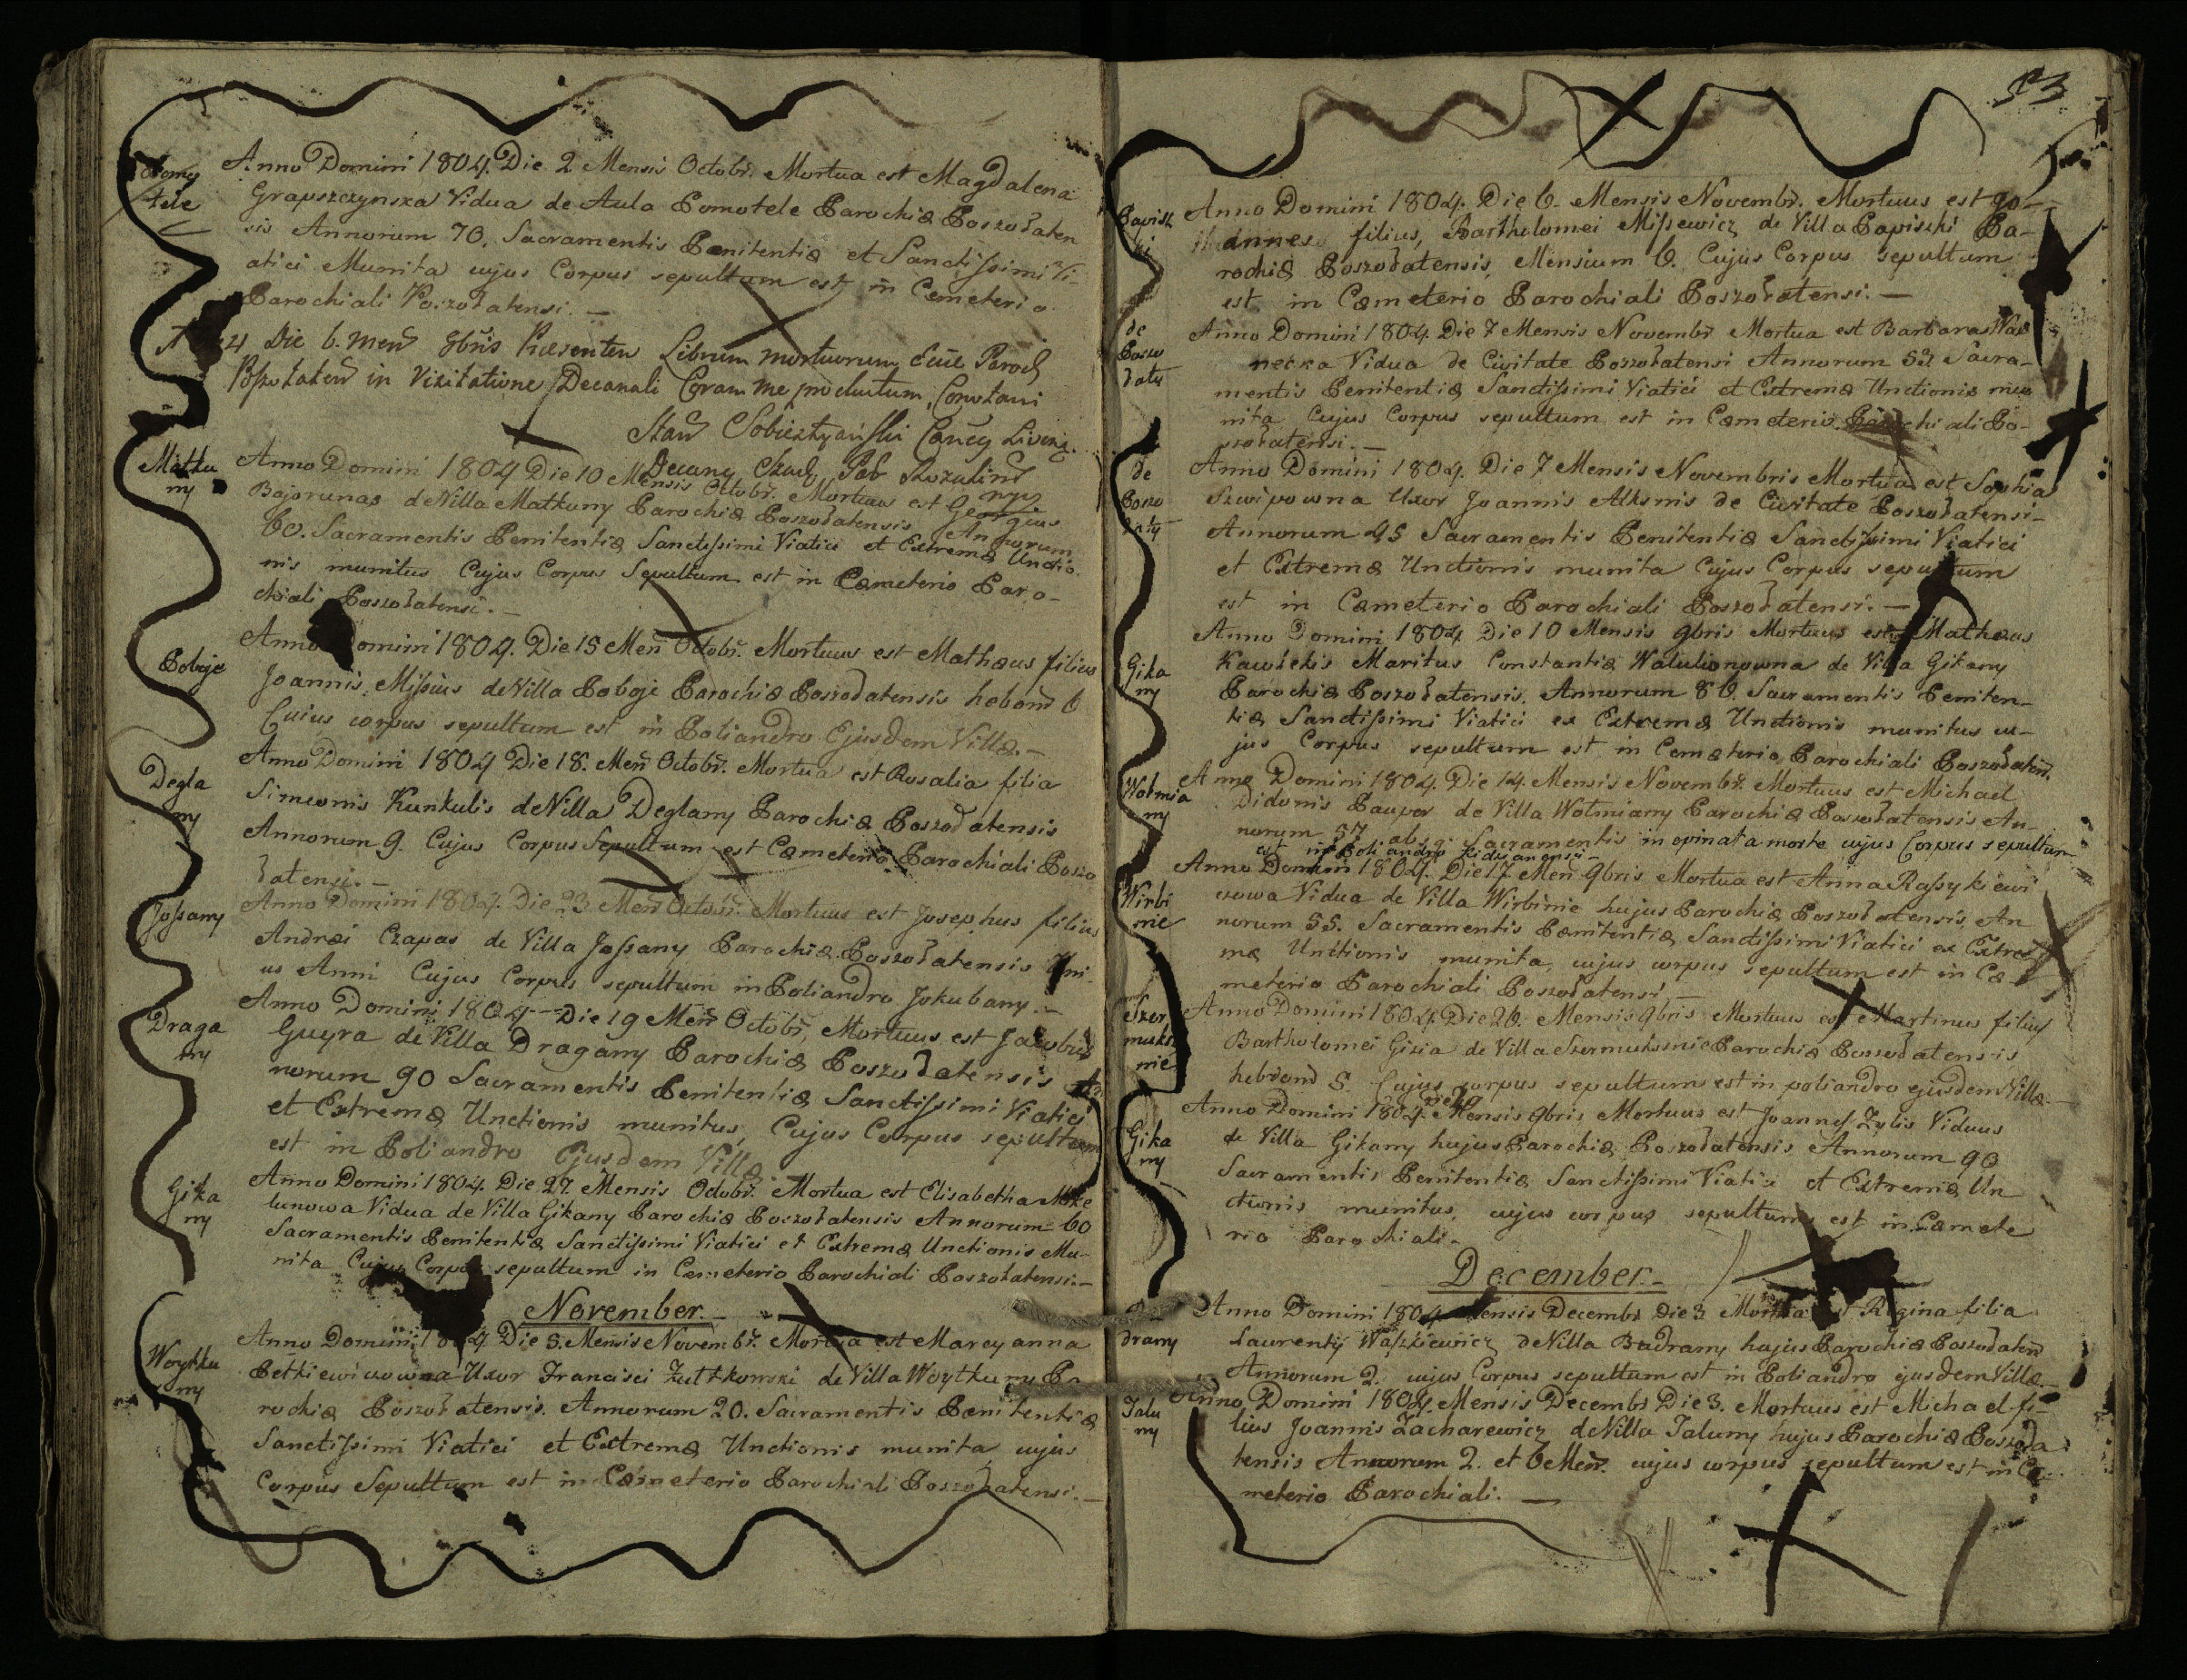 Pomo
tele
Anno Domini 1804. Die 2 Mensis Octobr. Mortua est Magdalena
Grapszczynska Vidua de Aula Pomotele Parochiæ Poszołaten
sis Annorum 70. Sacramentis Penitentiæ et Sanctissimi Vi-
atici Munita cujus Corpus sepultum est in Cemeterio
Parochiali Poszołatensi. —
4 Die 6. Men 8bris Præsenten Librum mortuorum Ecclæ Paroch
Poszołaten in Visitatione Decanali Coram me productum, Connotavi
Decany
Matku
ny
Anno Domini 1804 Die 10 Mensis Octobr. Mortuus est Georgius
Bajorunas de Villa Matkuny Parochiæ Poszołatensis Annorum
60. Sacramentis Penitentiæ Sanctissimi Viatici et Extremæ Unctio
nis munitus Cujus Corpus Sepultum est in Cæmeterio Paro-
chiali Poszołatensi. —
Poboje
Anno Domini 1804. Die 15 Men Octobr. Mortuus est Mathæus filius
Joannis Missius de Villa Poboje Parochiæ Poszołatensis hebom 6
Cuius corpus sepultum est in Poliandro Ejusdem Villæ. —
Degla
ny
Anno Domini 1804 Die 18. Men Octobr. Mortua est Rosalia filia
Simeonis Kunkulis de Villa Deglany Parochiæ Poszołatensis
Annorum 9. Cujus Corpus Sepultum est Cæmeterio Parochiali Poszo
łatensi. —
Jossany
Anno Domini 1804. Die 23. Men Octobr. Mortuus est Josephus filius
Andræi Czapas de Villa Jossany Parochiæ Poszołatensis Uni-
us Anni Cujus Corpus sepultum in Poliandro Jokubany. —
Draga
ny
Anno Domini 1804 — Die 19 Men Octobr, Mortuus est Jacobus
Guyra de Villa Dragany Parochiæ Poszołatensis An
norum 90 Sacramentis Penitentiæ Sanctissimi Viatici
et Extremæ Unctionis munitus, Cujus Corpus sepultum
est in Poliandro Ejusdem Villæ
Gika
ny
Anno Domini 1804. Die 27. Mensis Octobr. Mortua est Elisabetha Mike
lunowa Vidua de Villa Gikany Parochiæ Poszołatensis Annorum 60
Sacramentis Penitentiæ Sanctissimi Viatici et Extremæ Unctionis Mu-
nita Cujus Corpus sepultum in Cemeterio Parochiali Poszołatensi. —
November. —
Woytku
ny
Anno Domini 1804 Die 5. Mensis Novembr. Mortua est Marcyanna
Petkiewiczowna Uxor Francisci Zutkowski de Villa Woytkuny Pa
rochiæ Poszołatensis. Annorum 20. Sacramentis Pænitentiæ
Sanctissimi Viatici et Extremæ Unctionis munita, cujus
Corpus Sepultum est in Cæmeterio Parochiali Poszołatensi. —
53
Papisz
ki
Anno Domini 1804. Die 6. Mensis Novembr. Mortuus est Jo-
annes filius, Bartholomei Missewicz de Villa Papiszki Pa-
rochiæ Poszołatensis, Mensium 6. Cujus Corpus sepultum
est in Cæmeterio Parochiali Poszołatensi. —
de
Poszo
łaty
Anno Domini 1804 Die 7 Mensis Novembr Mortua est Barbara
Vidua de Civitate Poszołatensi Annorum 53 Sacra-
mentis Penitentiæ Sanctissimi Viatici et Extremæ Unctionis mu
nita Cujus Corpus sepultum est in Cæmeterio Parochiali Po-
szołatensi. —
de
Poszo
łaty
Anno Domini 1804. Die 7 Mensis Novembris Mortua est Sophia
Szwipowna Uxor Joannis Alksnis de Civitate Poszołatensi-
Annorum 45 Sacramentis Penitentiæ Sanctissimi Viatici
et Extremæ Unctionis munita Cujus Corpus sepultum
est in Cæmeterio Parochiali Poszołatensi. —
Gika
ny
Anno Domini 1804 Die 10 Mensis 9bris Mortuus est Mathæus
Kawleckis Maritus Constantiæ Walulionowna de Villa Gikany
Parochiæ Poszołatensis. Annorum 86 Sacramentis Peniten-
tiæ Sanctissimi Viatici ex Extremæ Unctionis munitus cu-
jus Corpus sepultum est in Cemæterio Parochiali Poszołaten.
Wołmia
ny
Anno Domini 1804. Die 14. Mensis Novembr. Mortuus est Michael
Didonis Pauper de Villa Wołmiany Parochiæ Poszołatensis An-
norum 57 absq. Sacramentis in opinata morte cujus Corpus sepultum
est in Poliandro
Wirbi
nie
Anno Domini 1804. Die 17 Men 9bris Mortua est Anna Rassykiewi
czowa Vidua de Villa Wirbinie hujus Parochiæ Poszołatensis, An
norum 55. Sacramentis Pænitentiæ, Sanctissimi Viatici ex Extre
mæ Unctionis munita, cujus corpus sepultum est in Cæ-
meterio Parochiali Poszołatensi —
Szer
muks
nie
Anno Domini 1804. Die 26. Mensis 9bris Mortuus est Martinus filius
Bartholomei Gizia de Villa Szermuksznie Parochiæ Poszołatensis
hebdom 5. Cujus corpus sepultum est in poliandro ejusdem Villæ. —
Gika
ny
Anno Domini 1804. Mensis 9bris Mortuus est Joannes Zylis Viduus
de Villa Gikany hujus Parochiæ Poszołatensis Annorum 90
Sacramentis Penitentiæ Sanctissimi Viatici et Extremæ Un
ctionis munitus, cujus corpus sepultum est in Cæmete
rio Parochiali. —
December. —
drany
Anno Domini 1804 Mensis Decembr Die 3 Mortua est Regina filia
Laurentij Waszkiewicz de Villa Budrany hujus Parochiæ Poszołaten
Annorum 2. cujus Corpus sepultum est in Poliandro ejusdem Villæ. —
Talu
ny
Anno Domini 1804. Mensis Decembr Die 3. Mortuus est Michael fi-
lius Joannis Zacharewicz de Villa Taluny hujus Parochiæ Poszoła
tensis Annorum 2. et 6 Men. cujus corpus sepultum est in Cæ-
meterio Parochiali. —